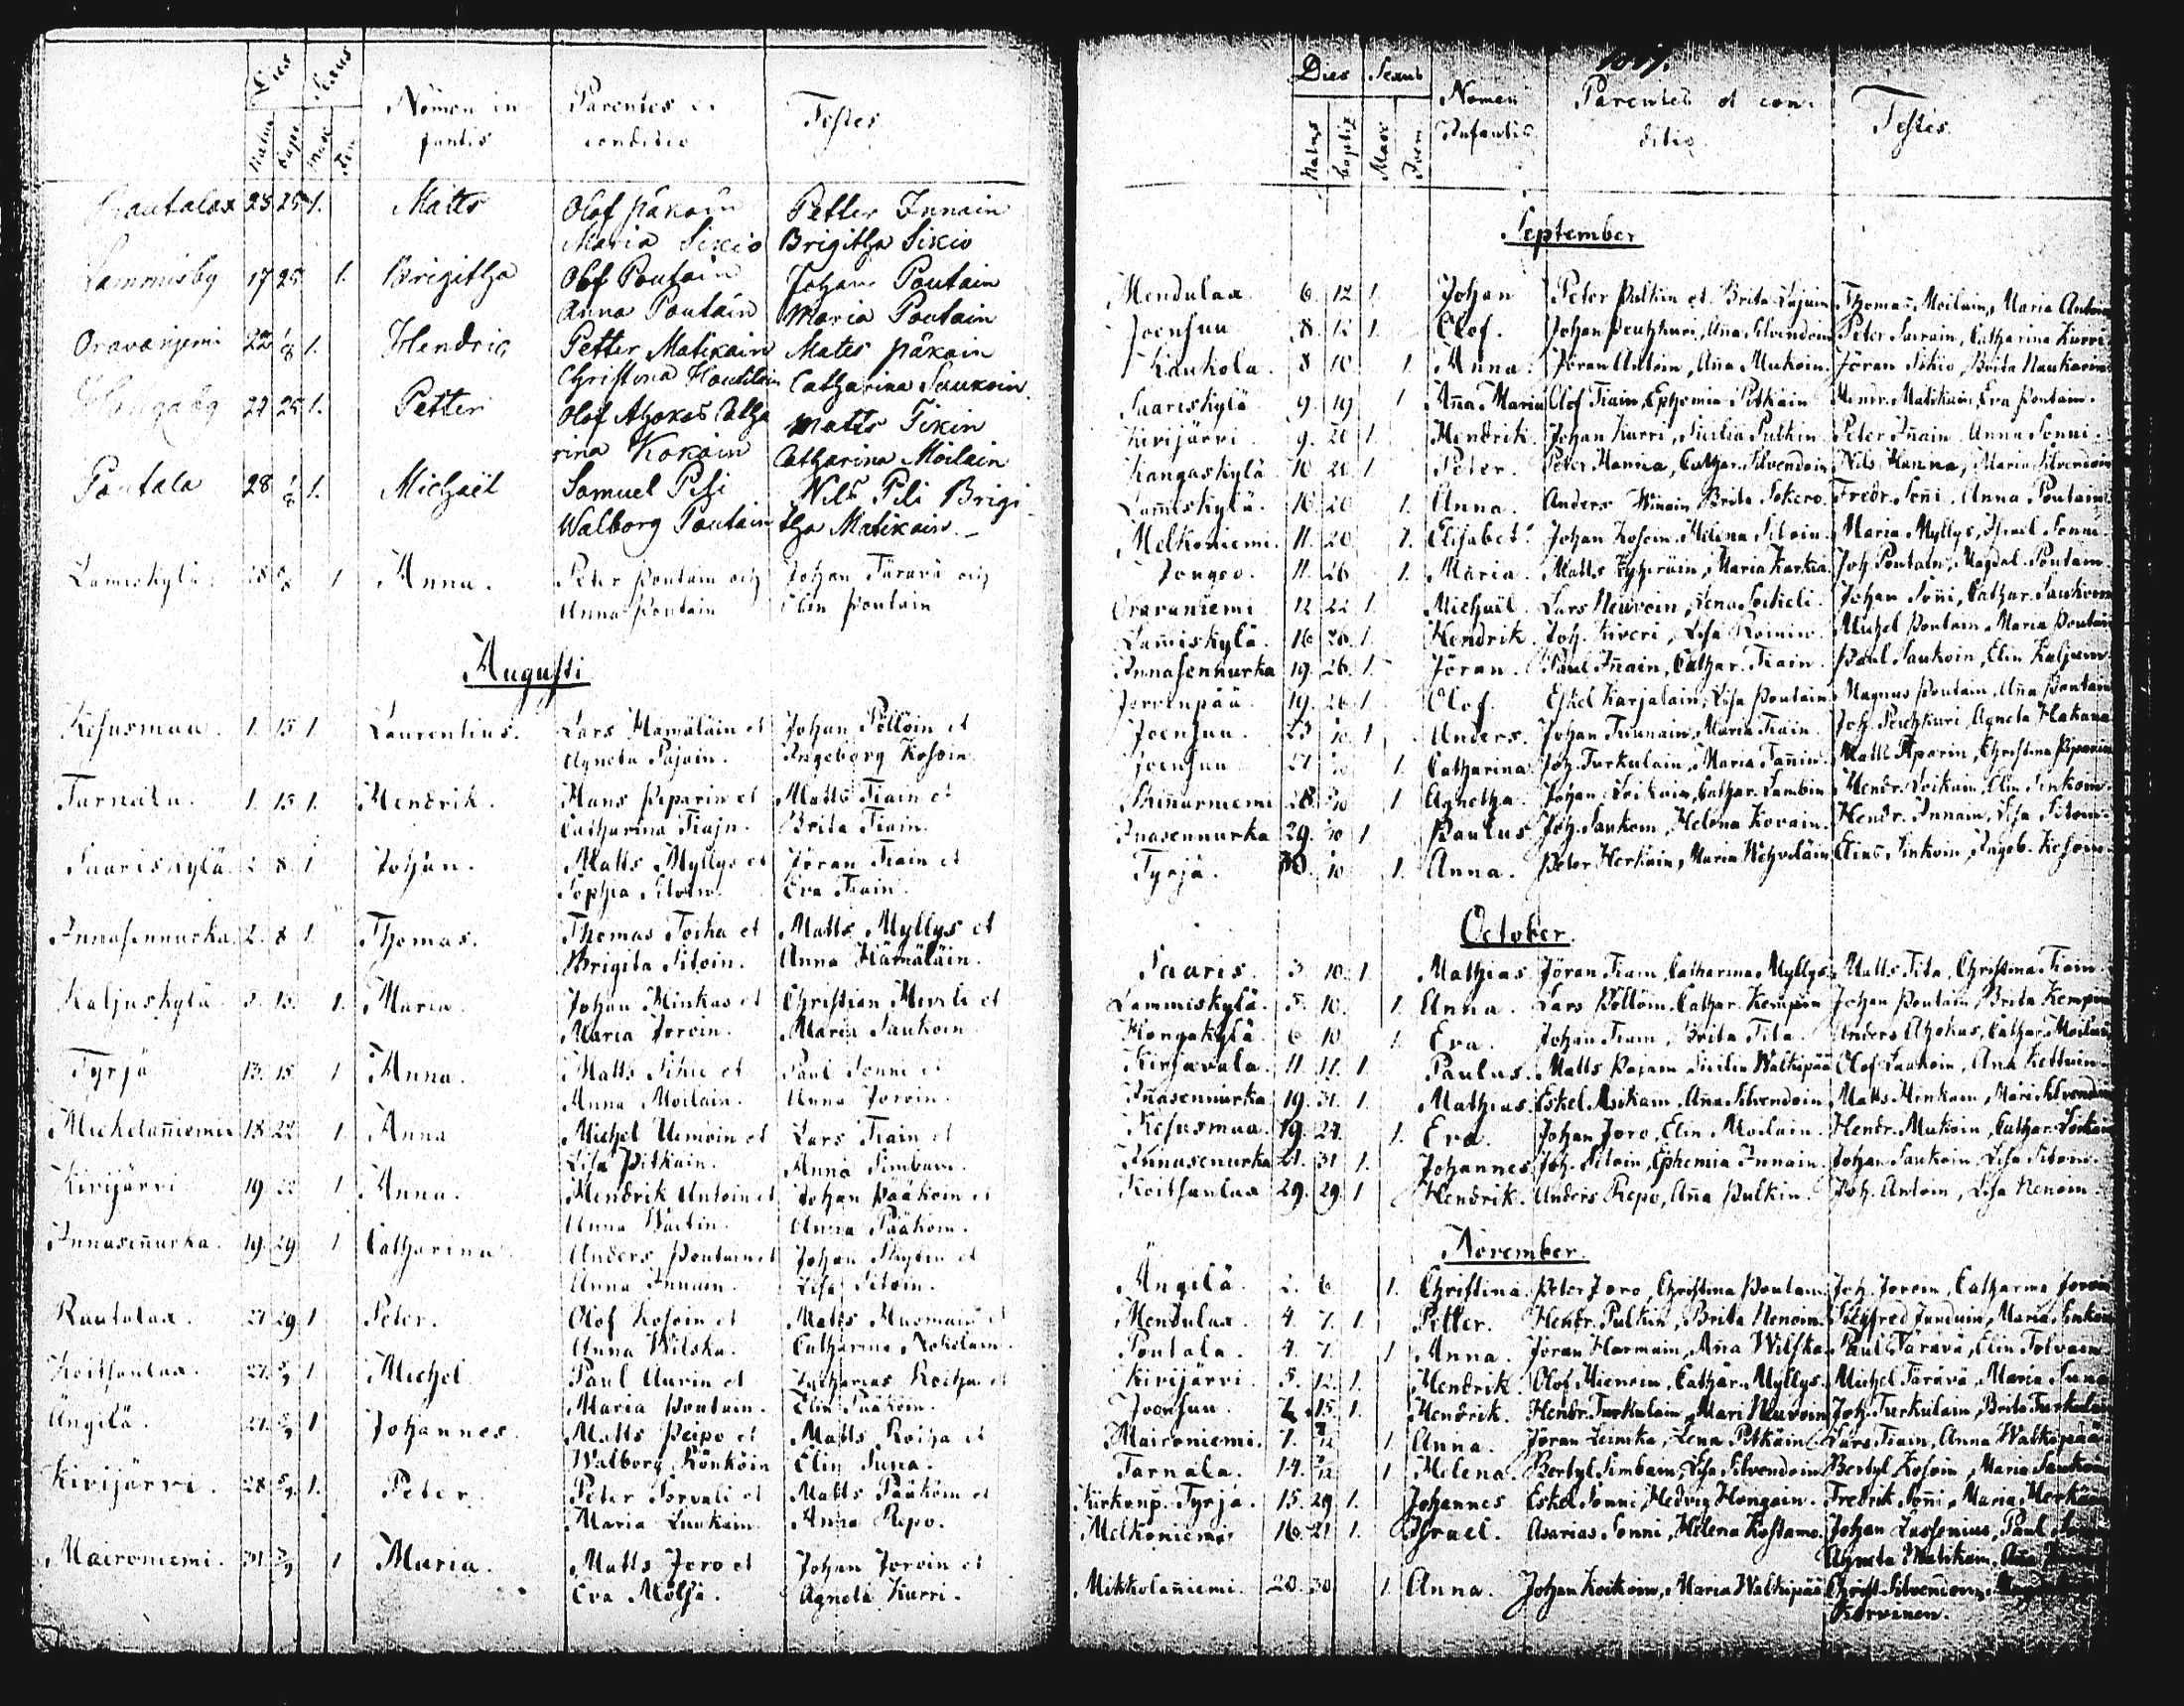 Dies Sexus
Natus bapt masc fem
Nomen in
fantis
Parentes et
conditio
Testes
Rautalax 23 25 1. Matts Olof Påkain Petter Innain
Maria Sikiö Brigitha Sikiö
Lammisby 17 25 1. Brigitha Olof Poutain Johan Poutain
Anna Poutain Maria Poutain
Oravanjemi 22 1/8 1. Hendric Petter Matikain Mates Påkain
Christina Houtilain Catharina Saukoin
22 25 1. Petter Olof Ahokas Catha Matts Tikin
rina Kokoin Catharina Moilain
Poutala 28 1/8 1. Michaël Samuel Pili Nils Pili Brigi
Walborg Poutain tha Matikain.
Lamiskylä 1 Anna. Peter Poutain och Johan Tärävä och
Anna Poutain Elin Poutain
Augusti
Kesusmaa. 1. 15 1. Laurentius. Lars Hämäläin et Johan Pöllöin et
Agneta Pajain. Ingeborg Kosoin
Tarnala. 1. 15 1. Hendrik. Hans Piparin et Matts Tiain et
Catharina Tiajn. Brita Tiain.
Saariskylä. 2. 8. 1. Johan. Matts Myllys et Jöran Tiain et
Sophia Sitoin. Eva Tiain.
Innasennurka. 2. 8 1. Thomas. Thomas Toika et Matts Myllys et
Brigita Sitoin. Anna Hämäläin.
Kaljuskylä 15. 1. Maria. Johan Minkas et Christian et
Maria Joroin. Maria Saukoin
Tyrjä 13. 15 1 Anna. Matts Sikiö et Paul Sonni et
Anna Moilain. Anna Joroin.
18. 22 1. Anna Michel et Lars Tiain et
Lisa Pitkäin. Anna Simbain.
Kivijärvi 19 22 1 Anna. Hendrik Antoin et Johan Pääköin et
Anna Anna Pääköin.
Innasennurka. 19. 29 1 Catharina. Anders Poutain et Johan et
Anna Innain. Lisa Sitoin.
Rautalax. 21 29 1 Peter. Olof Kosoin et Matts et
Anna Wilska. Catharina
Koitsanlax. 27. 5/9 1 Michel. Paul Aurin et Zacharias Roiha et
Maria Poutain. Elin Pääköin.
Ängilä. 27. 5/9 1 Johannes. Matts Peipo et Matts Roiha et
Walborg Könköin Elin Suna.
Kivijärvi. 28 5/9. 1. Peter. Peter Torvali et Matts Pääköin et
Maria Luukain. Anna Repo.
Maironiemi. 31 5/9 1 Maria. Matts Joro et Johan Joroin et
Eva Mölsä. Agneta Kurri.
Dies Sexus
Natus baptiz Masc Foem
Nomen
Infantis
Parentes et con
ditio
Testes.
September
Mendulax. 6. 12. 1. Johan Peter Pulkin et Brita Lajuin Thomas Moilain, Maria Antoin
Joensuu 8. 12 1. Olof. Johan Peuhkuri, Aña Silvendoin Peter Savain, Catharina Kurri
Kaukola. 8 10 1. Anna. Jöran Antoin, Aña Mukoin. Jöran Sikiö, Brita Naukarin
Saariskylä 9. 19 1 Aña Maria Olof Tiain, Ephemia Pitkäin Hendr. Matikain, Eva Poutain.
Kivijärvi. 9. 20 1. Hendrik. Johan Kurri, Sicilia Pulkin. Peter Iñain, Anna Sonni.
Kangaskylä 10 20. 1. Peter. Peter Hanna, Cathar. Silvendoin Nils Hanna, Maria Silvendoin
Lam̃iskylä. 10. 20 1. Anna. Anders Winain Brita Sokero. Fredr. Soñi. Anna Poutain.
Melkoniemi. 11. 20. 1. Elisabet. Johan Kosoin. Helena Sitoin. Maria Myllys, Israel Sonni.
Jongeo. 11. 26 1. Maria. Matts Maria Karhia. Joh. Poutain, Magdal. Poutain.
Oravaniemi 12 22. 1. Michaël. Lars Neuvoin, Lena Johan Soñi, Cathar. Saukoin
Lam̃iskylä. 16 26. 1. Hendrik. Joh. Kiveri, Lisa Roinin. Michel Poutain, Maria Poutain
Innasennurka 19. 26. 1. Jöran. Paul Iñain, Cathar. Tiain. Paul Saukoin, Elin Kaljain.
Jorvenpää. 19. 26. 1. Olof. Eskel Karjalain, Lisa Poutain. Magnus Poutain, Aña Poutain
Joensuu. 23 1/10. 1. Anders. Johan Tiunain, Maria Tiain. Joh. Peuhkuri, Agneta Hakana
Joensuu 27 1. Catharina. Joh. Turkulain, Maria Tañin. Matts Piparin, Christina Piparin
28. 3/10 1 Agnetha. Johan Loikoin, Cathar. Lambin Hendr. Loikain, Elin Sinkoin.
Inasennurka 29. 3/10 1 Paulus Joh. Saukoin, Helena Kovain. Hendr. Innain, Lisa Sitoin.
Tyrjä. 30. 10. 1. Anna. Peter Herkäin, Maria Wehviläin Elias Sinkoin, Ingeb. Kosoin.
October.
Saaris. 3. 10. 1. Mathias. Jöran Tiain, Catharina Myllys. Matts Tita, Christina Tiain.
Lammiskylä. 5. 10. 1. Anna. Lars Pöllöin. Cathar. Kempoin Johan Poutain, Brita Kempoin
Hongakylä. 6. 10. 1. Eva. Johan Tiain, Brita Tita. Anders Ahokas, Cathar. Moilain
Kirjavala. 11. 17. 1. Paulus. Matts Pajain Sicilia Walkipää Olof Laukoin, Ana Kettuin.
Iñasennurka. 19. 31. 1. Mathias. Eskel Asikain. Aña Silvendoin. Matts Minkoin, Mari Silvendoin
Kesusmaa. 19. 24. 1. Eva. Johan Joro, Elin Moilain. Hendr. Mukoin, Cathar. Loikain
Iñnasenurka 21. 31. 1. Johannes Joh. Sitoin, Ephemia Innain. Johan Saukoin. Lisa Sitoin.
Koitsanlax 29. 29. 1 Hendrik. Anders Repo, Aña Pulkin. Joh. Antoin, Lisa Nenoin.
November.
Ängilä. 2. 6. 1. Christina. Peter Joro, Christina Poutain Joh. Joroin, Catharina Joroin
Mendulax. 4. 7. 1. Petter. Hendr. Pulkin, Brita Nenoin. Sigfred Junduin, Maria Sinkoin
Poutala. 4. 7. 1 Anna. Jöran Harmain, Aña Wilska. Paul Tärävä, Elin Tolvain
Kivijärvi. 5. 12. 1. Hendrik. Olof Hienoin, Cathar. Myllys. Michel Tärävä, Maria Suna
Joensuu. 7. 15. 1. Hendrik. Hendr. Turkulain, Mari Neuvoin Joh. Turkulain, Brita Turkulain
Maironiemi. 7. 1 Anna. Jöran Leinika, Lena Pitkäin. Lars Tiain, Anna Walkepää
Tarnala. 14. 1 Helena. Bertyl Simbain, Lisa Silvendoin Bertyl Kosoin, Maria Saukoin
Kiirkanp. Tyrjä. 15. 29 1. Johannes Eskel Sonni, Hedvig Hongain. Fredrik Soñi, Maria Herkäin
Melkoniemi 16. 21 1. Israel. Asarias Sonni, Helena Kostamo. Johan Lassenius, Paul
Agneta Matikain. Aña
Mikkolañiemi. 20. 30 1. Anna. Johan Koikoin, Maria Walkipää Christ. Silvendoin,
Korvinen.